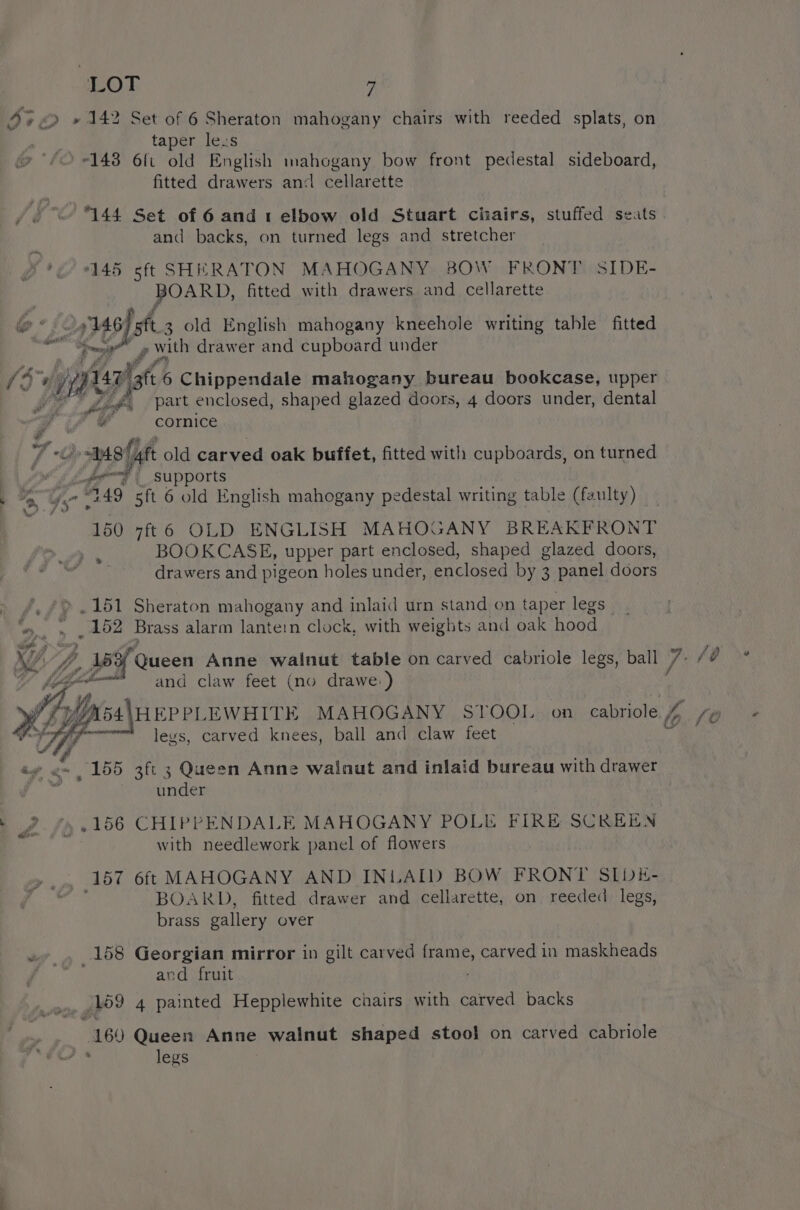 LOT 7
142 Set of 6 Sheraton mahogany chairs with reeded splats, on
taper legs
143 6ft old English mahogany bow front pedestal sideboard,
fitted drawers and cellarette
144 Set of 6 and 1 elbow old Stuart chairs, stuffed seats
and backs, on turned legs and stretcher
145 5ft SHERATON MAHOGANY BOW FRONT SIDE-
BOARD, fitted with drawers and cellarette
146 5ft 3 old English mahogany kneehole writing table fitted
with drawer and cupboard under
147 3ft 6 Chippendale mahogany bureau bookcase, upper
part enclosed, shaped glazed doors, 4 doors under, dental
cornice
148 4ft old carved oak buffet, fitted with cupboards, on turned
supports
149 5ft 6 old English mahogany pedestal writing table (faulty)
150 7ft 6 OLD ENGLISH MAHOGANY BREAKFRONT
BOOKCASE, upper part enclosed, shaped glazed doors,
drawers and pigeon holes under, enclosed by 3 panel doors
151 Sheraton mahogany and inlaid urn stand on taper legs
152 Brass alarm lantern clock, with weights and oak hood
153 Queen Anne walnut table on carved cabriole legs, ball 7. 10
and claw feet (no drawer)
154 HEPPLEWHITE MAHOGANY STOOL on cabriole
legs, carved knees, ball and claw feet
155 3ft 3 Queen Anne walnut and inlaid bureau with drawer
under
156 CHIPPENDALE MAHOGANY POLE FIRE SCREEN
with needlework panel of flowers
157 6ft MAHOGANY AND INLAID BOW FRONT SIDE-
BOARD, fitted drawer and cellarette, on reeded legs,
brass gallery over
158 Georgian mirror in gilt carved frame, carved in maskheads
and fruit
159 4 painted Hepplewhite chairs with carved backs
160 Queen Anne walnut shaped stool on carved cabriole
legs